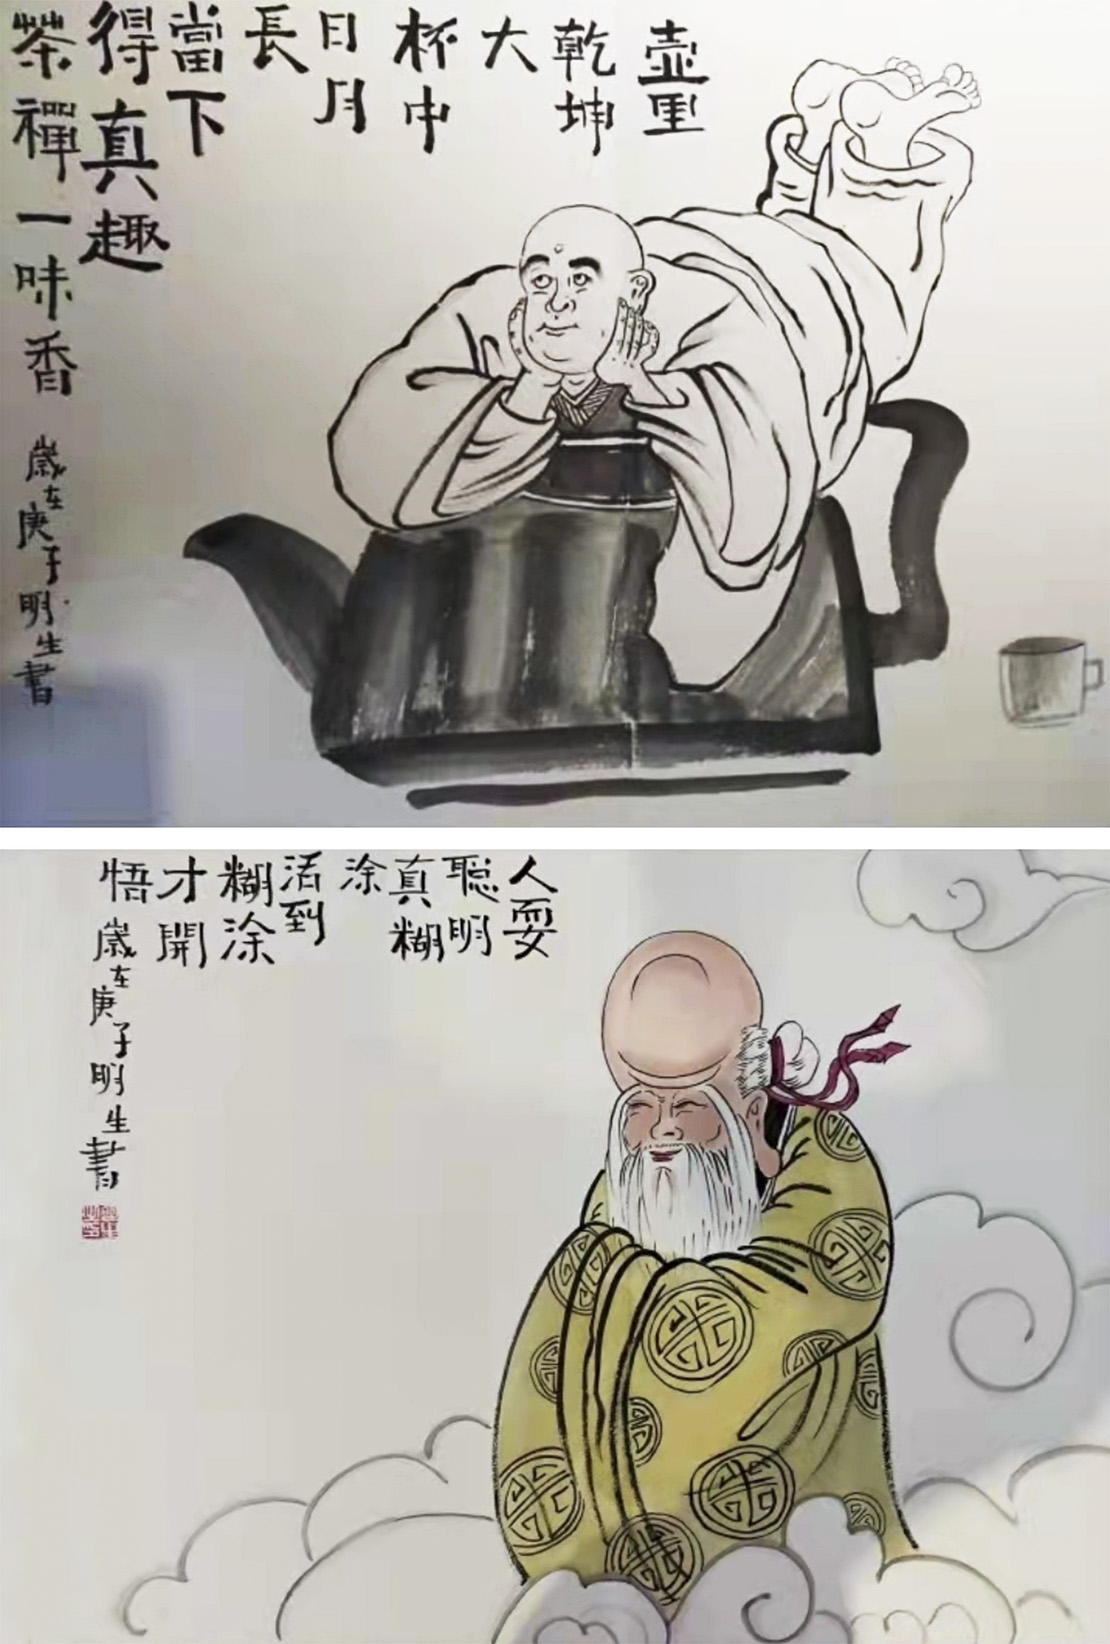 壶里
乾坤
大
杯中
日月
長
當下
得真趣
茶禪一味香
歲在庚子明生書
人耍
聪明
真糊
涂
活到
糊涂
才開
悟
歲在庚子明生書